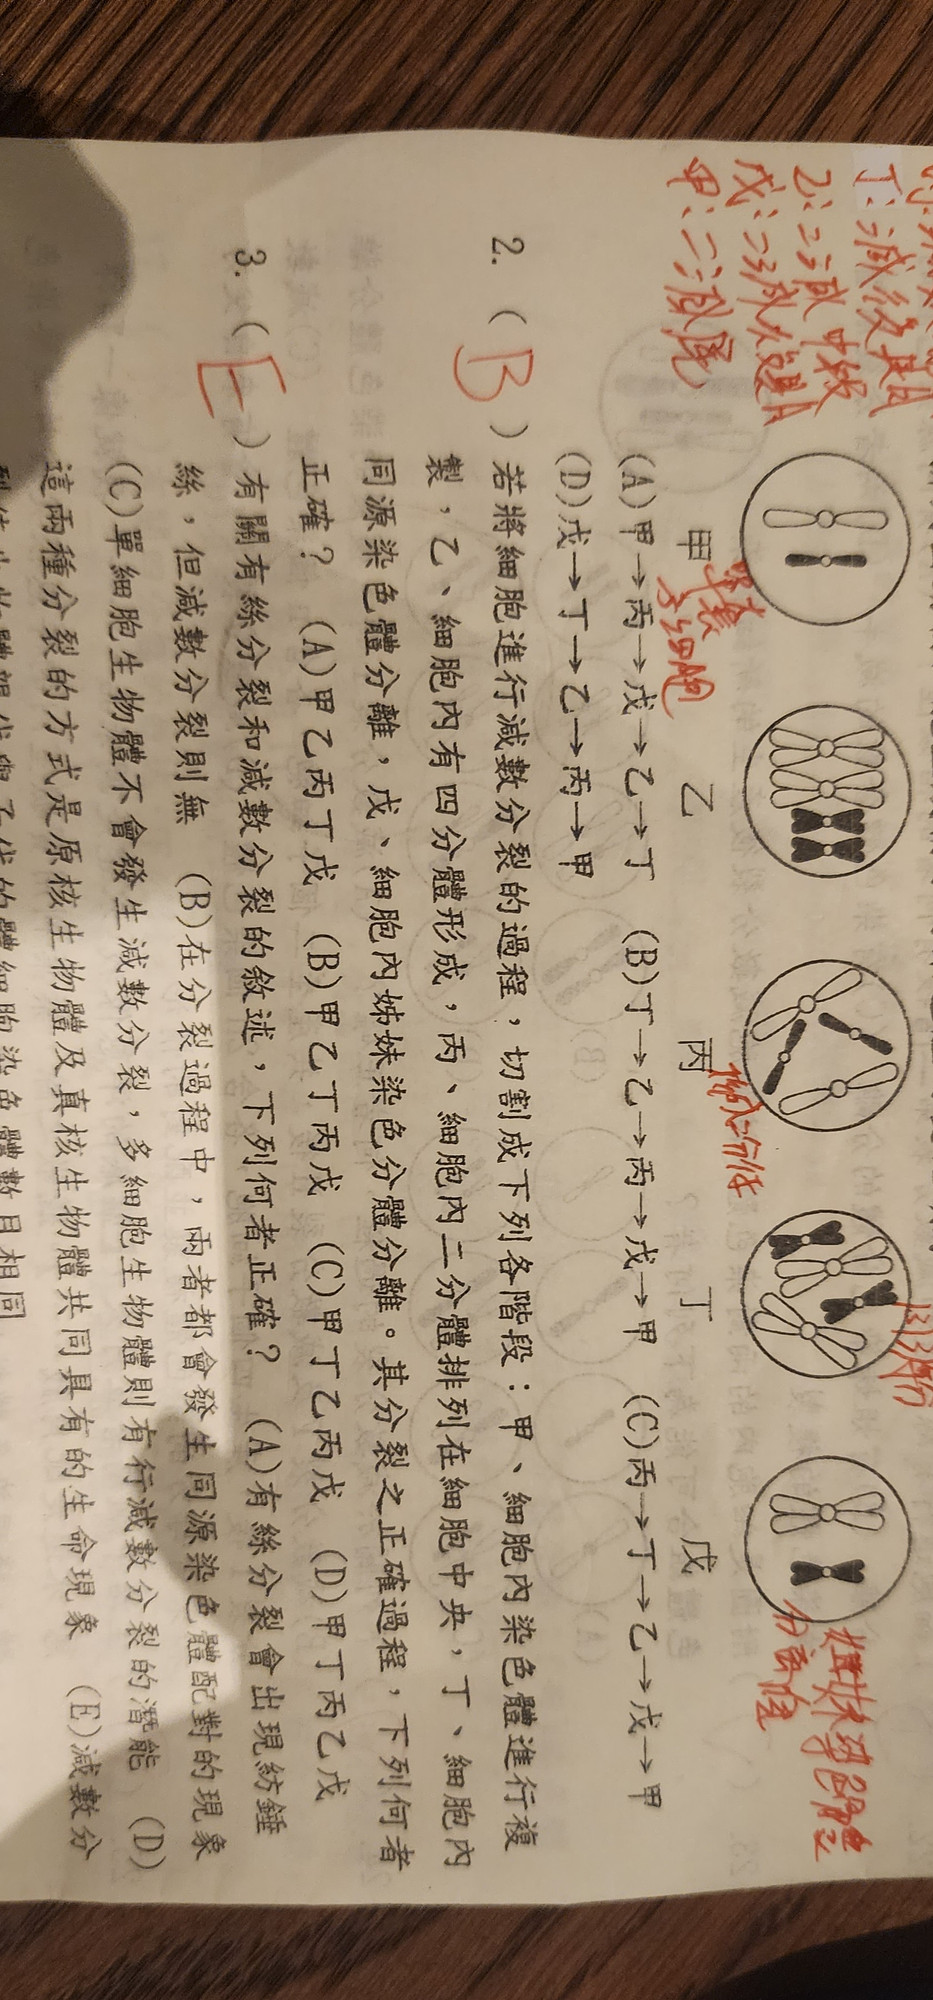 丁:減後期
乙:二減中期
戊:二減後期
甲:二減尾
甲 乙 丙 丁 戊
單套
子細胞
分離後
(A)甲→丙→戊→乙→丁 (B)丁→乙→丙→戊→甲 (C)丙→丁→乙→戊→甲
(D)戊→丁→乙→丙→甲
2. ( B ) 若將細胞進行減數分裂的過程，切割成下列各階段：甲、細胞內染色體進行複
製，乙、細胞內有四分體形成，丙、細胞內二分體排列在細胞中央，丁、細胞內
同源染色體分離，戊、細胞內姊妹染色分體分離。其分裂之正確過程，下列何者
正確？ (A)甲乙丙丁戊 (B)甲乙丁丙戊 (C)甲丁乙丙戊 (D)甲丁丙乙戊
3. ( E ) 有關有絲分裂和減數分裂的敘述，下列何者正確？ (A)有絲分裂會出現紡錘
絲，但減數分裂則無 (B)在分裂過程中，兩者都會發生同源染色體配對的現象
(C)單細胞生物體不會發生減數分裂，多細胞生物體則有行減數分裂的潛能 (D)
這兩種分裂的方式是原核生物體及真核生物體共同具有的生命現象 (E)減數分